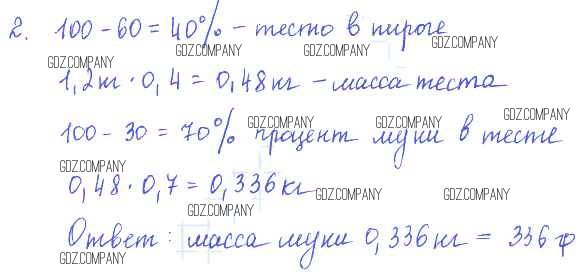 2. 100 - 60 = 40% - тесто в пироге
GDZ.COMPANY GDZ.COMPANY GDZ.COMPANY
1,2кг · 0,4 = 0,48кг - масса теста
GDZ.COMPANY GDZ.COMPANY GDZ.COMPANY
100 - 30 = 70% процент муки в тесте
GDZ.COMPANY
0,48 · 0,7 = 0,336кг
GDZ.COMPANY GDZ.COMPANY GDZ.COMPANY
Ответ: масса муки 0,336кг = 336 гр
GDZ.COMPANY